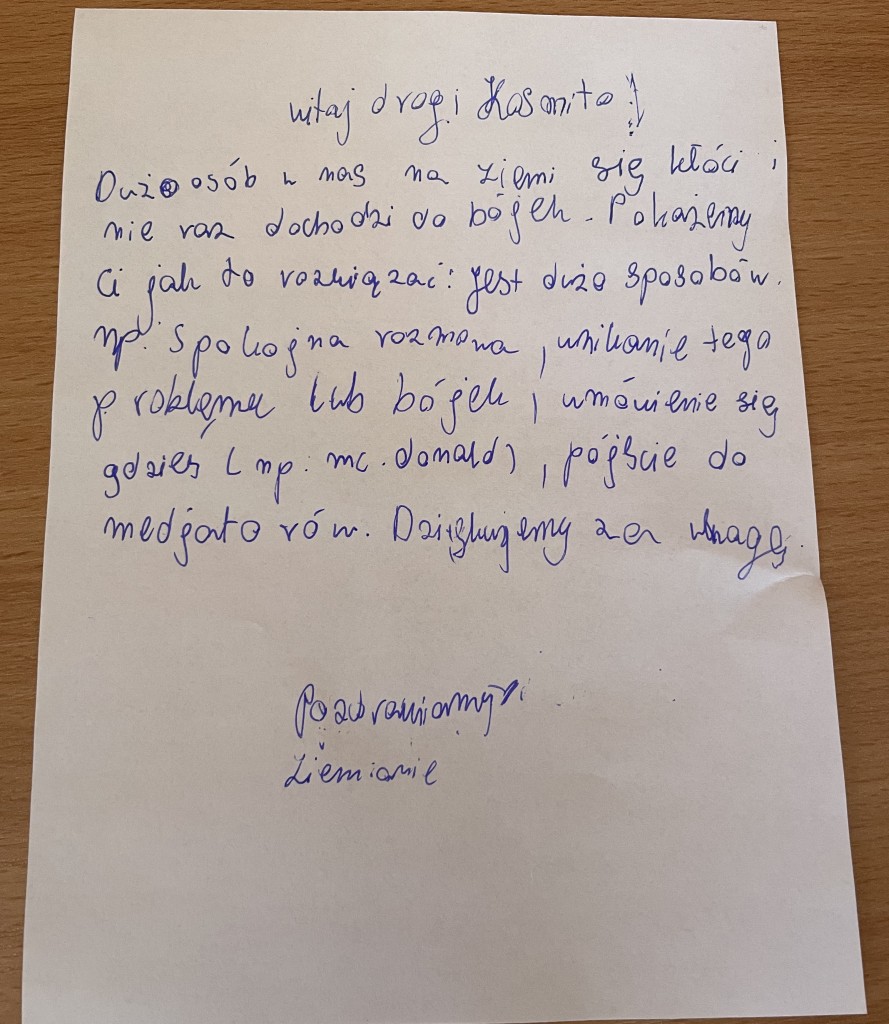 witaj drogi Kosmito!
Dużo osób u nas na ziemi się kłóci i
nie raz dochodzi do bójek. Pokażemy
Ci jak to rozwiązać: jest dużo sposobów.
np. spokojna rozmowa, unikanie tego
problemu lub bójek, umówienie się
gdzieś (np. mc.donald), pójście do
medjatorów. Dziękujemy za uwagę.
Pozdrawiamy
Ziemianie